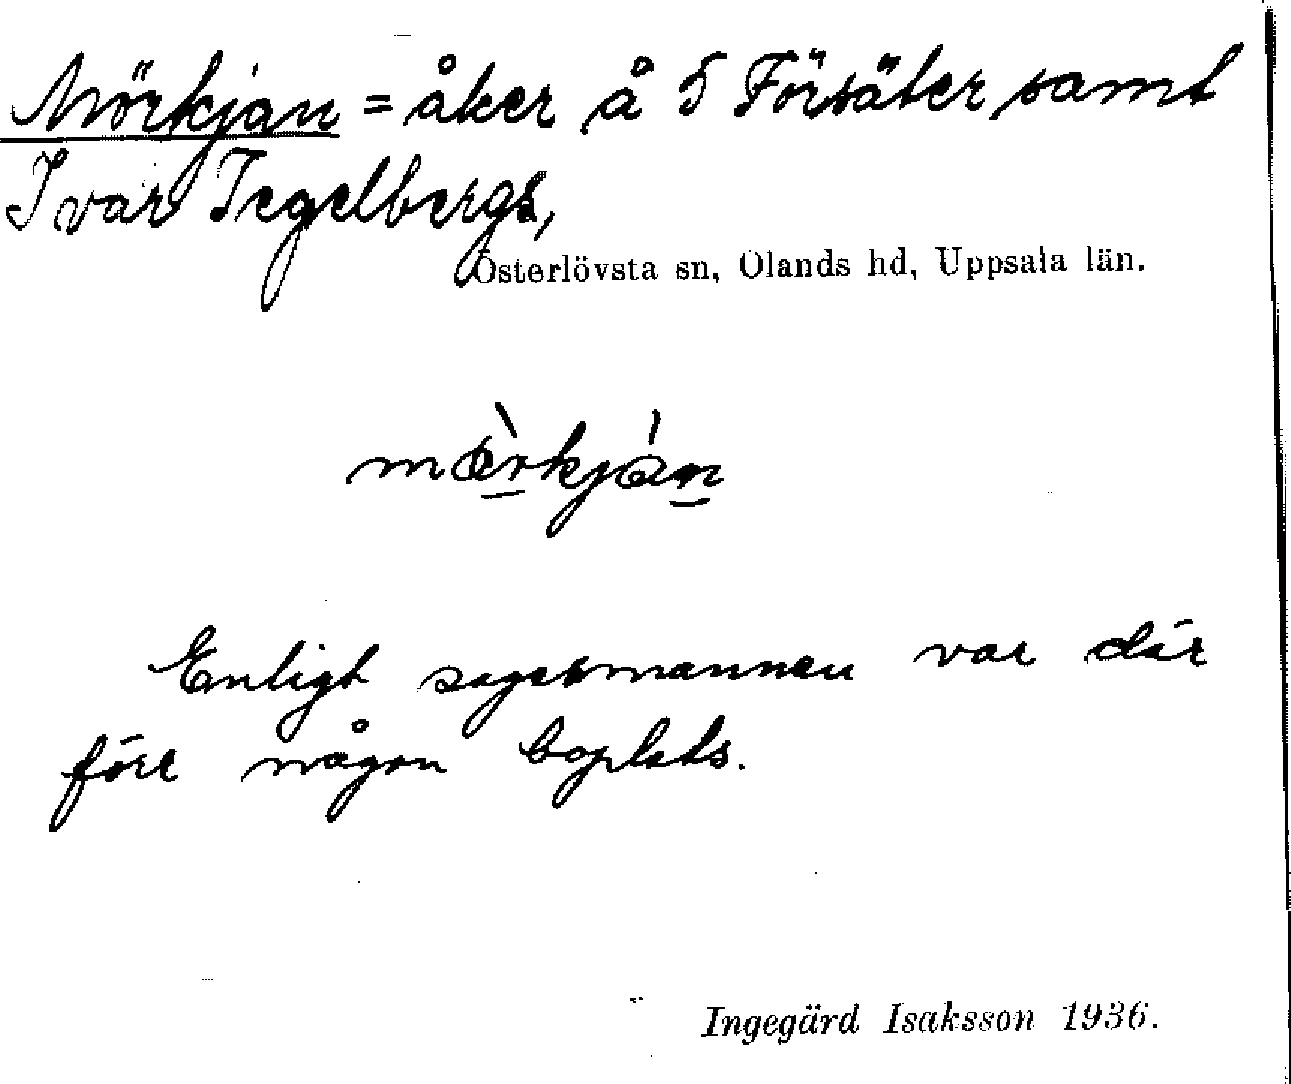 Mörkjan = åker å 5 Försäter samt
Ivar Tegelbergs,
Österlövsta sn, Olands hd, Uppsala län.
mœ̀rkján
Enligt sagesmannen var där
förr någon boplats.
Ingegärd Isaksson 1936.